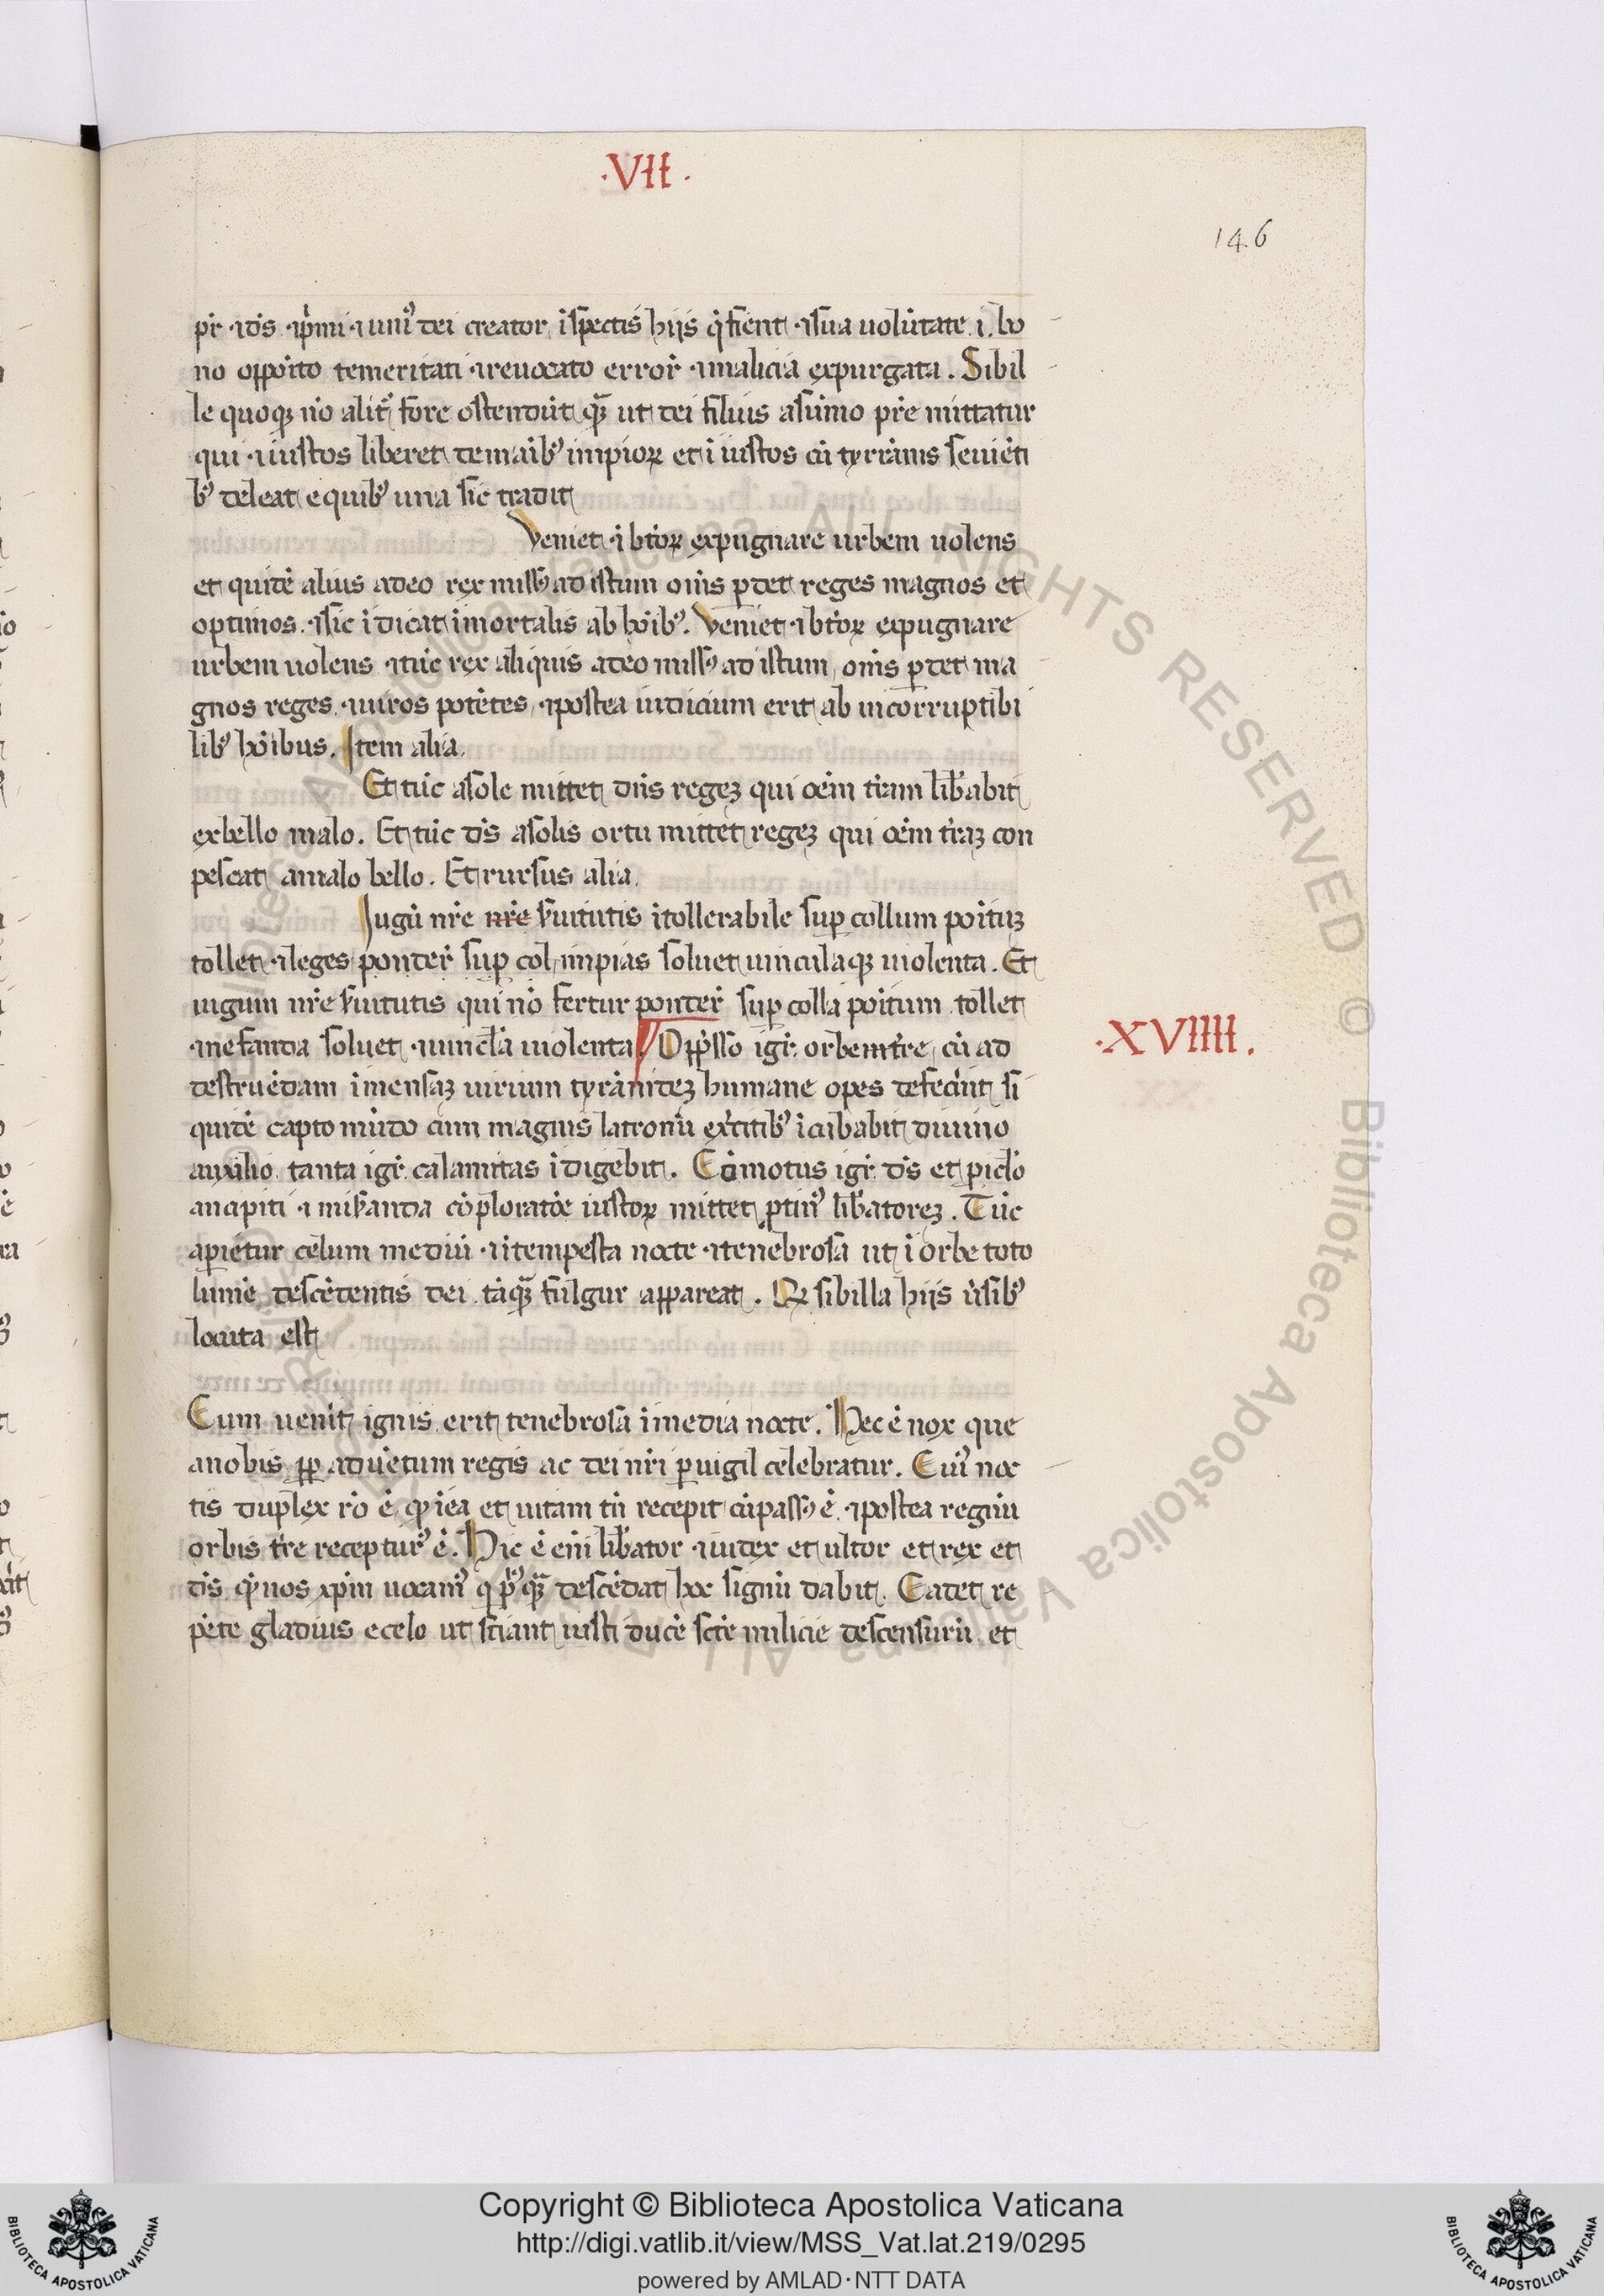 ·VII·
146
pr̄ ⁊ ds̄ ⁊ pͥmi ⁊ unꝰ dei creator, ĩspectis hijs q̃ fient ⁊ sua uolũtate .i. bo
no opp̄oĩto temeritati ⁊ reuocato error̃ ⁊ malicia expurgata. Sibil
le quoqꝫ nõ alit̃ fore ostendũt qᷓꝫ ut dei filius asũmo pr̃e mittatur
qui ⁊ iustos liberet demaĩbꝰ impioꝝ et ĩiustos cũ tyrãnis seuiẽti
bꝰ deleat equibꝰ una sic tradit
Veniet ⁊ ĩ btõꝝ expugnare urbem uolens
et quidẽ alius adeo rex missꝰ ad istum om̃s ꝑdet reges magnos et
optimos. ⁊ sic ĩdicat ĩmortalis ab hoĩbꝰ. Veniet ⁊ btõꝝ expugnare
urbem uolens ⁊ tũc rex aliquis adeo missꝰ ad istum, om̃s ꝑdet ma
gnos reges ⁊ uiros potẽtes, ⁊ postea iudicium erit ab incorruptibi
libꝰ hõibus. Item alia.
Et tũc asole mittet dñs regeꝫ qui oẽm tr̃am lib̃abit
exbello malo. Et tũc ds̃ asolis ortu mittet regeꝫ qui oẽm tr̃aꝫ con
pescat amalo bello. Et rursus alia.
Iugũ nr̃e nr̃e s̃uitutis ĩtollerabile suꝑ collum poĩtuꝫ
tollet ⁊ leges ponder̃ suꝑ col, impias soluet uinculaqꝫ uiolenta. Et
iugum nr̃e s̃uitutis qui nõ fertur ponder̃ suꝑ colla poĩtum tollet
⁊ nefanda soluet ⁊ uincl̃a uiolenta. Opp̃sso igr̃ orbe tr̃e, cũ ad
·XVIIII.
destruẽdam ĩmensaꝫ uirium tyrãnideꝫ humane opes defecĩnt si
quidẽ capto mũdo cum magnis latronũ ex̃citibꝰ ĩcubabit diuino
auxilio tanta igr̃ calamitas ĩdigebit. Cõmotus igr̃ ds̃ et ꝑicl̃o
ancipiti ⁊ mis̃anda cõploratõe iustoꝝ mittet ꝓtinꝰ lib̃atoreꝫ. Tũc
aperietur celum mediũ ⁊ ĩtempesta nocte ⁊ tenebrosa ut ĩ orbe toto
lumẽ descẽdentis dei tãqᷓꝫ fulgur appareat. Qͥ sibilla hijs ũsibꝰ
locuta est
Cum uenit ignis erit tenebrosa ĩ media nocte. Hec ẽ nox que
anobis ꝓp̃ aduẽtum regis ac dei nr̃i ꝑuigil celebratur. Cuiꝰ noc
tis duplex rõ ẽ qꝫ ĩea et uitam tũ recepit cũ passꝰ ẽ ⁊ postea regnũ
orbis tr̃e recepturꝰ ẽ. Hic ẽ eñi lib̃ator ⁊ iudex et ultor et rex et
ds̃ quẽ nos xp̃m uocamꝰ qͥ pͥꝰqᷓꝫ descẽdat hoc signũ dabit. Cadet re
pẽte gladius ecelo ut sciant iusti ducẽ scẽ milicie descensurũ et
Copyright © Biblioteca Apostolica Vaticana
http://digi.vatlib.it/view/MSS_Vat.lat.219/0295
powered by AMLAD·NTT DATA